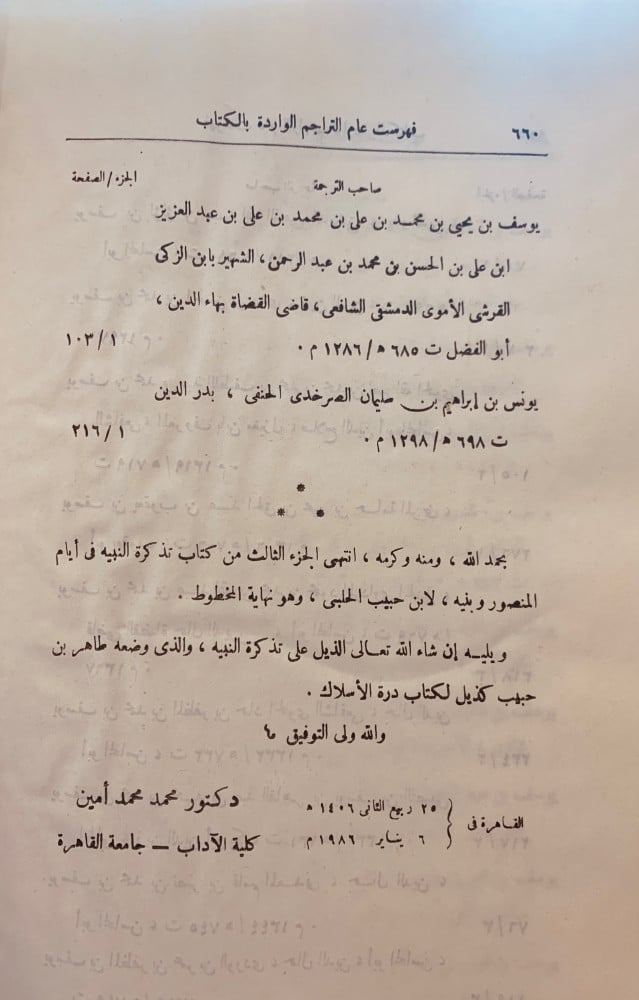 ٦٦٠ فهرست عام التراجم الواردة بالكتاب
صاحب الترجمة الجزء/الصفحة
يوسف بن يحيى بن محمد بن على بن محمد بن على بن عبد العزيز
ابن على بن الحسن بن محمد بن عبد الرحمن، الشهير بابن الزكى
القرشى الأموى الدمشقى الشافعى، قاضى القضاة بهاء الدين ،
أبو الفضل ت ٦٨٥ ه/١٢٨٦ م . ١/١٠٣
يونس بن إبراهيم بن سليمان الصرخدى الحنفى ، بدر الدين
ت ٦٩٨ ه/١٢٩٨ م . ١/٢١٦
*
* *
بحمد الله ، ومنه وكرمه ، انتهى الجزء الثالث من كتاب تذكرة النبيه فى أيام
المنصور وبنيه ، لابن حبيب الحلبى ، وهو نهاية المخطوط .
ويليه إن شاء الله تعالى الذيل على تذكرة النبيه ، والذى وضعه طاهر بن
حبيب كذيل لكتاب درة الأسلاك .
والله ولى التوفيق
القاهرة فى { ٢٥ ربيع الثانى ١٤٠٦ ه دكتور محمد محمد أمين
٦ يناير ١٩٨٦ م } كلية الآداب — جامعة القاهرة